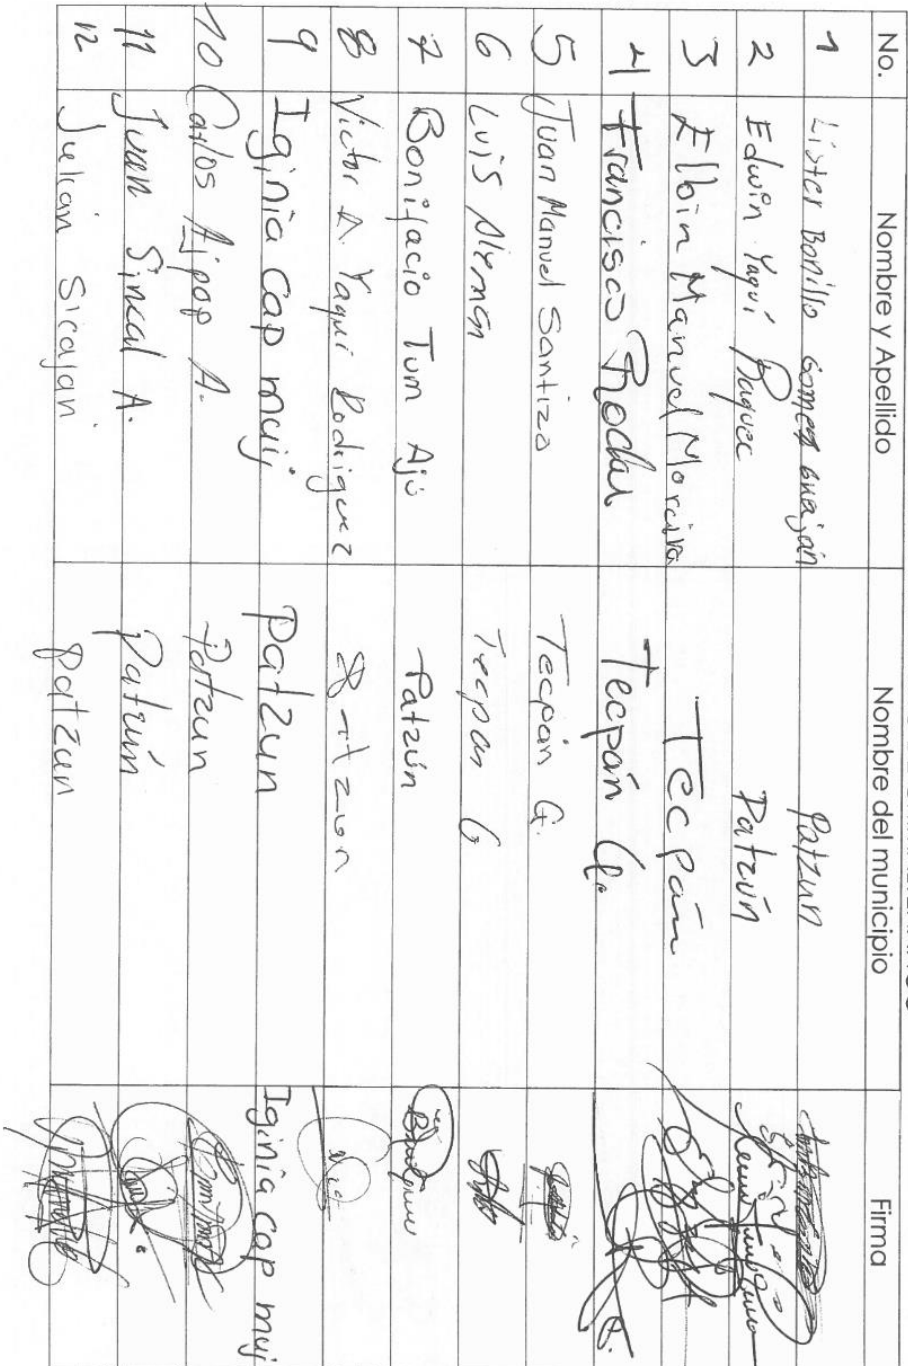 No. Nombre y Apellido Nombre del municipio Firma
1 Lister Bonillo Gomez Guajan Patzun
2 Edwin Yaquí Patzún
3 Elbin Manuel Morcira Tecpán
4 Francisco Rodas Tecpán G.
5 Juan Manuel Santizo Tecpán G.
6 Luis Aleman Tecpan G
7 Bonifacio Tum Ajú Patzún
8 Victor A. Yaqui Rodriguez
9 Iginia Cap muj Patzun Iginia Cap muj
10 Carlos Ajpop A. Patzun
11 Juan Sincal A. Patzún
12 Julian Sicajan Patzun